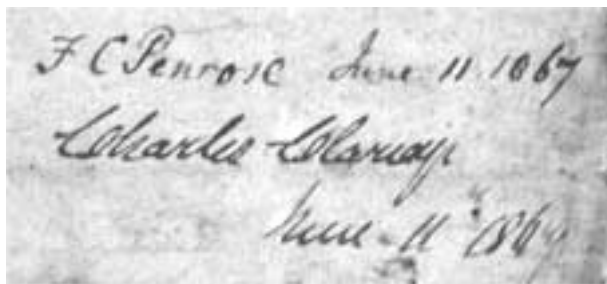 F C Penrose June 11. 1867
Charles Claridge
June 11 1867